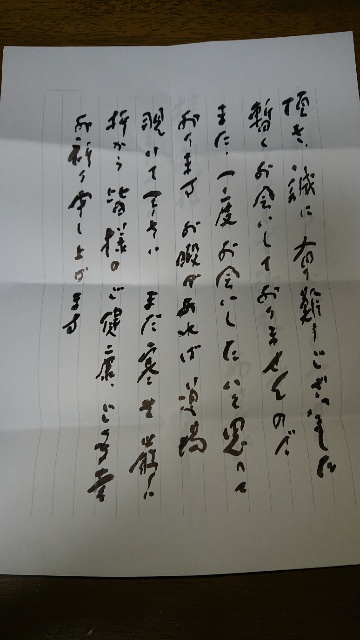 頂き、誠に有り難うございました
暫くお会いしておりませんので
また、一度お会いしたいと思って
おります お暇があれば 道場
覗いて下さい まだ寒
折から 皆様のご健康、ご多幸
お祈り申し上げます